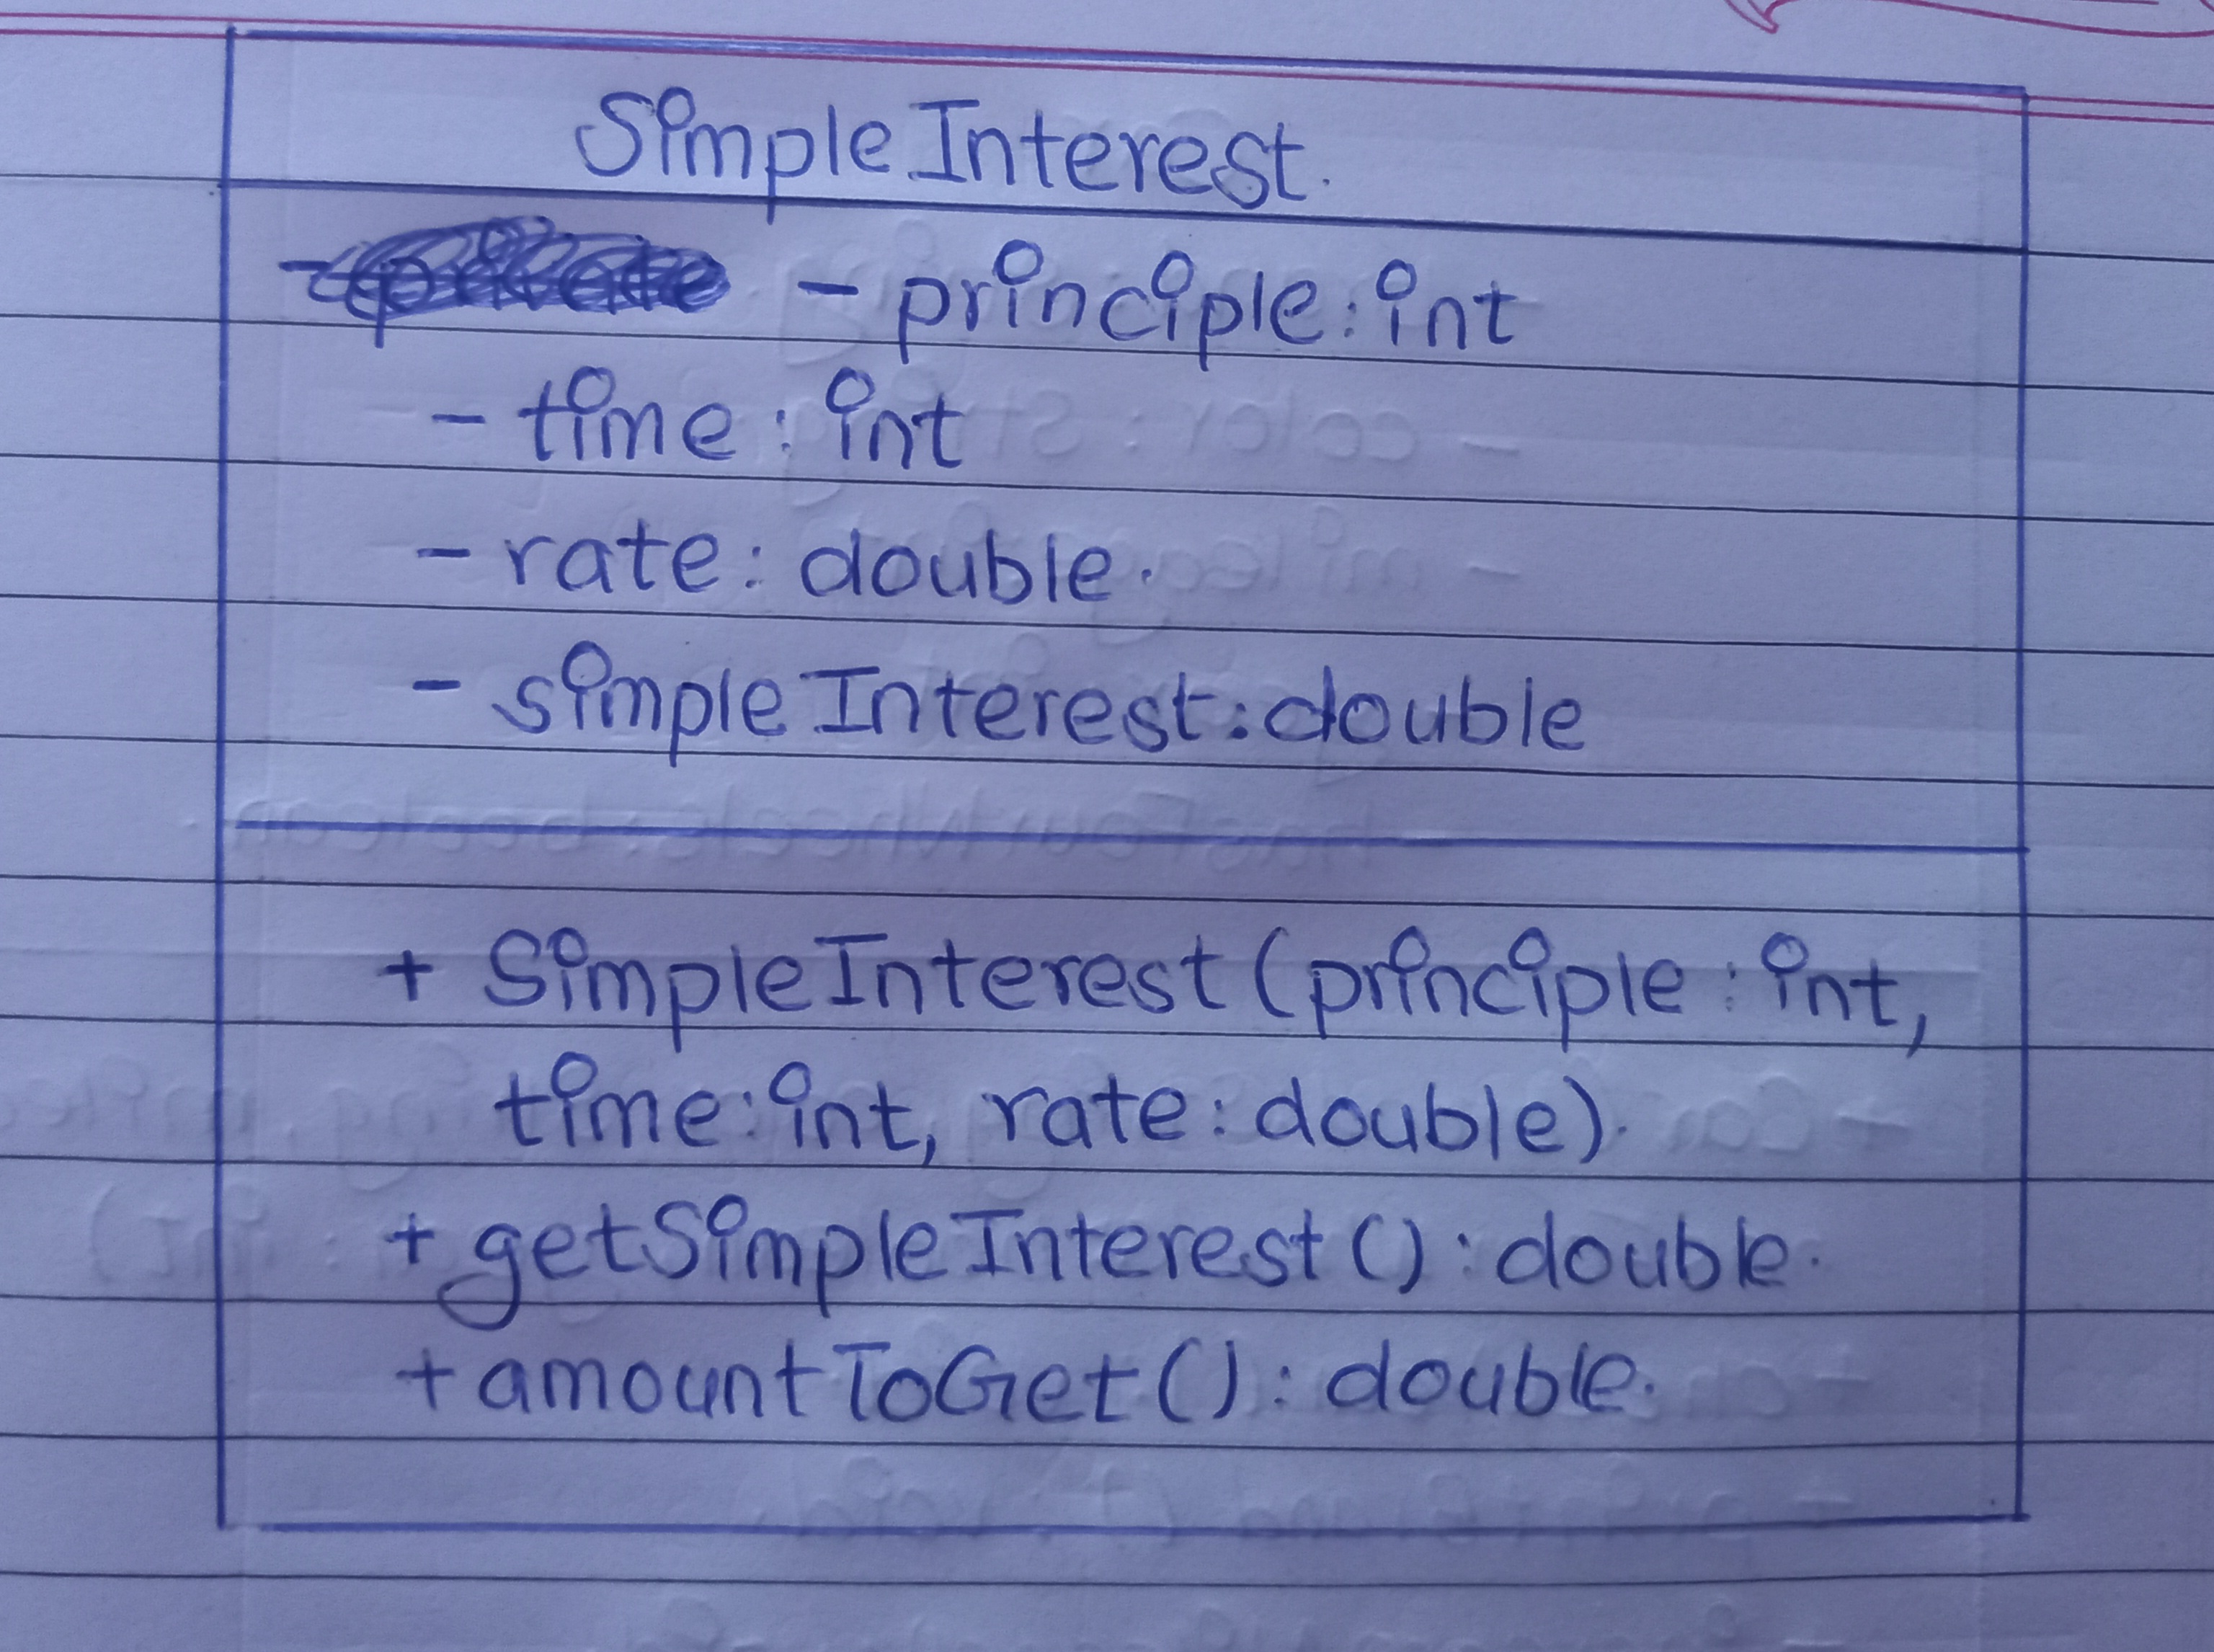 SimpleInterest.
- principle: int
- time: int
- rate: double.
- simpleInterest: double
+ SimpleInterest (principle: int,
time: int, rate: double).
+ getSimpleInterest(): double.
+ amountToGet(): double.